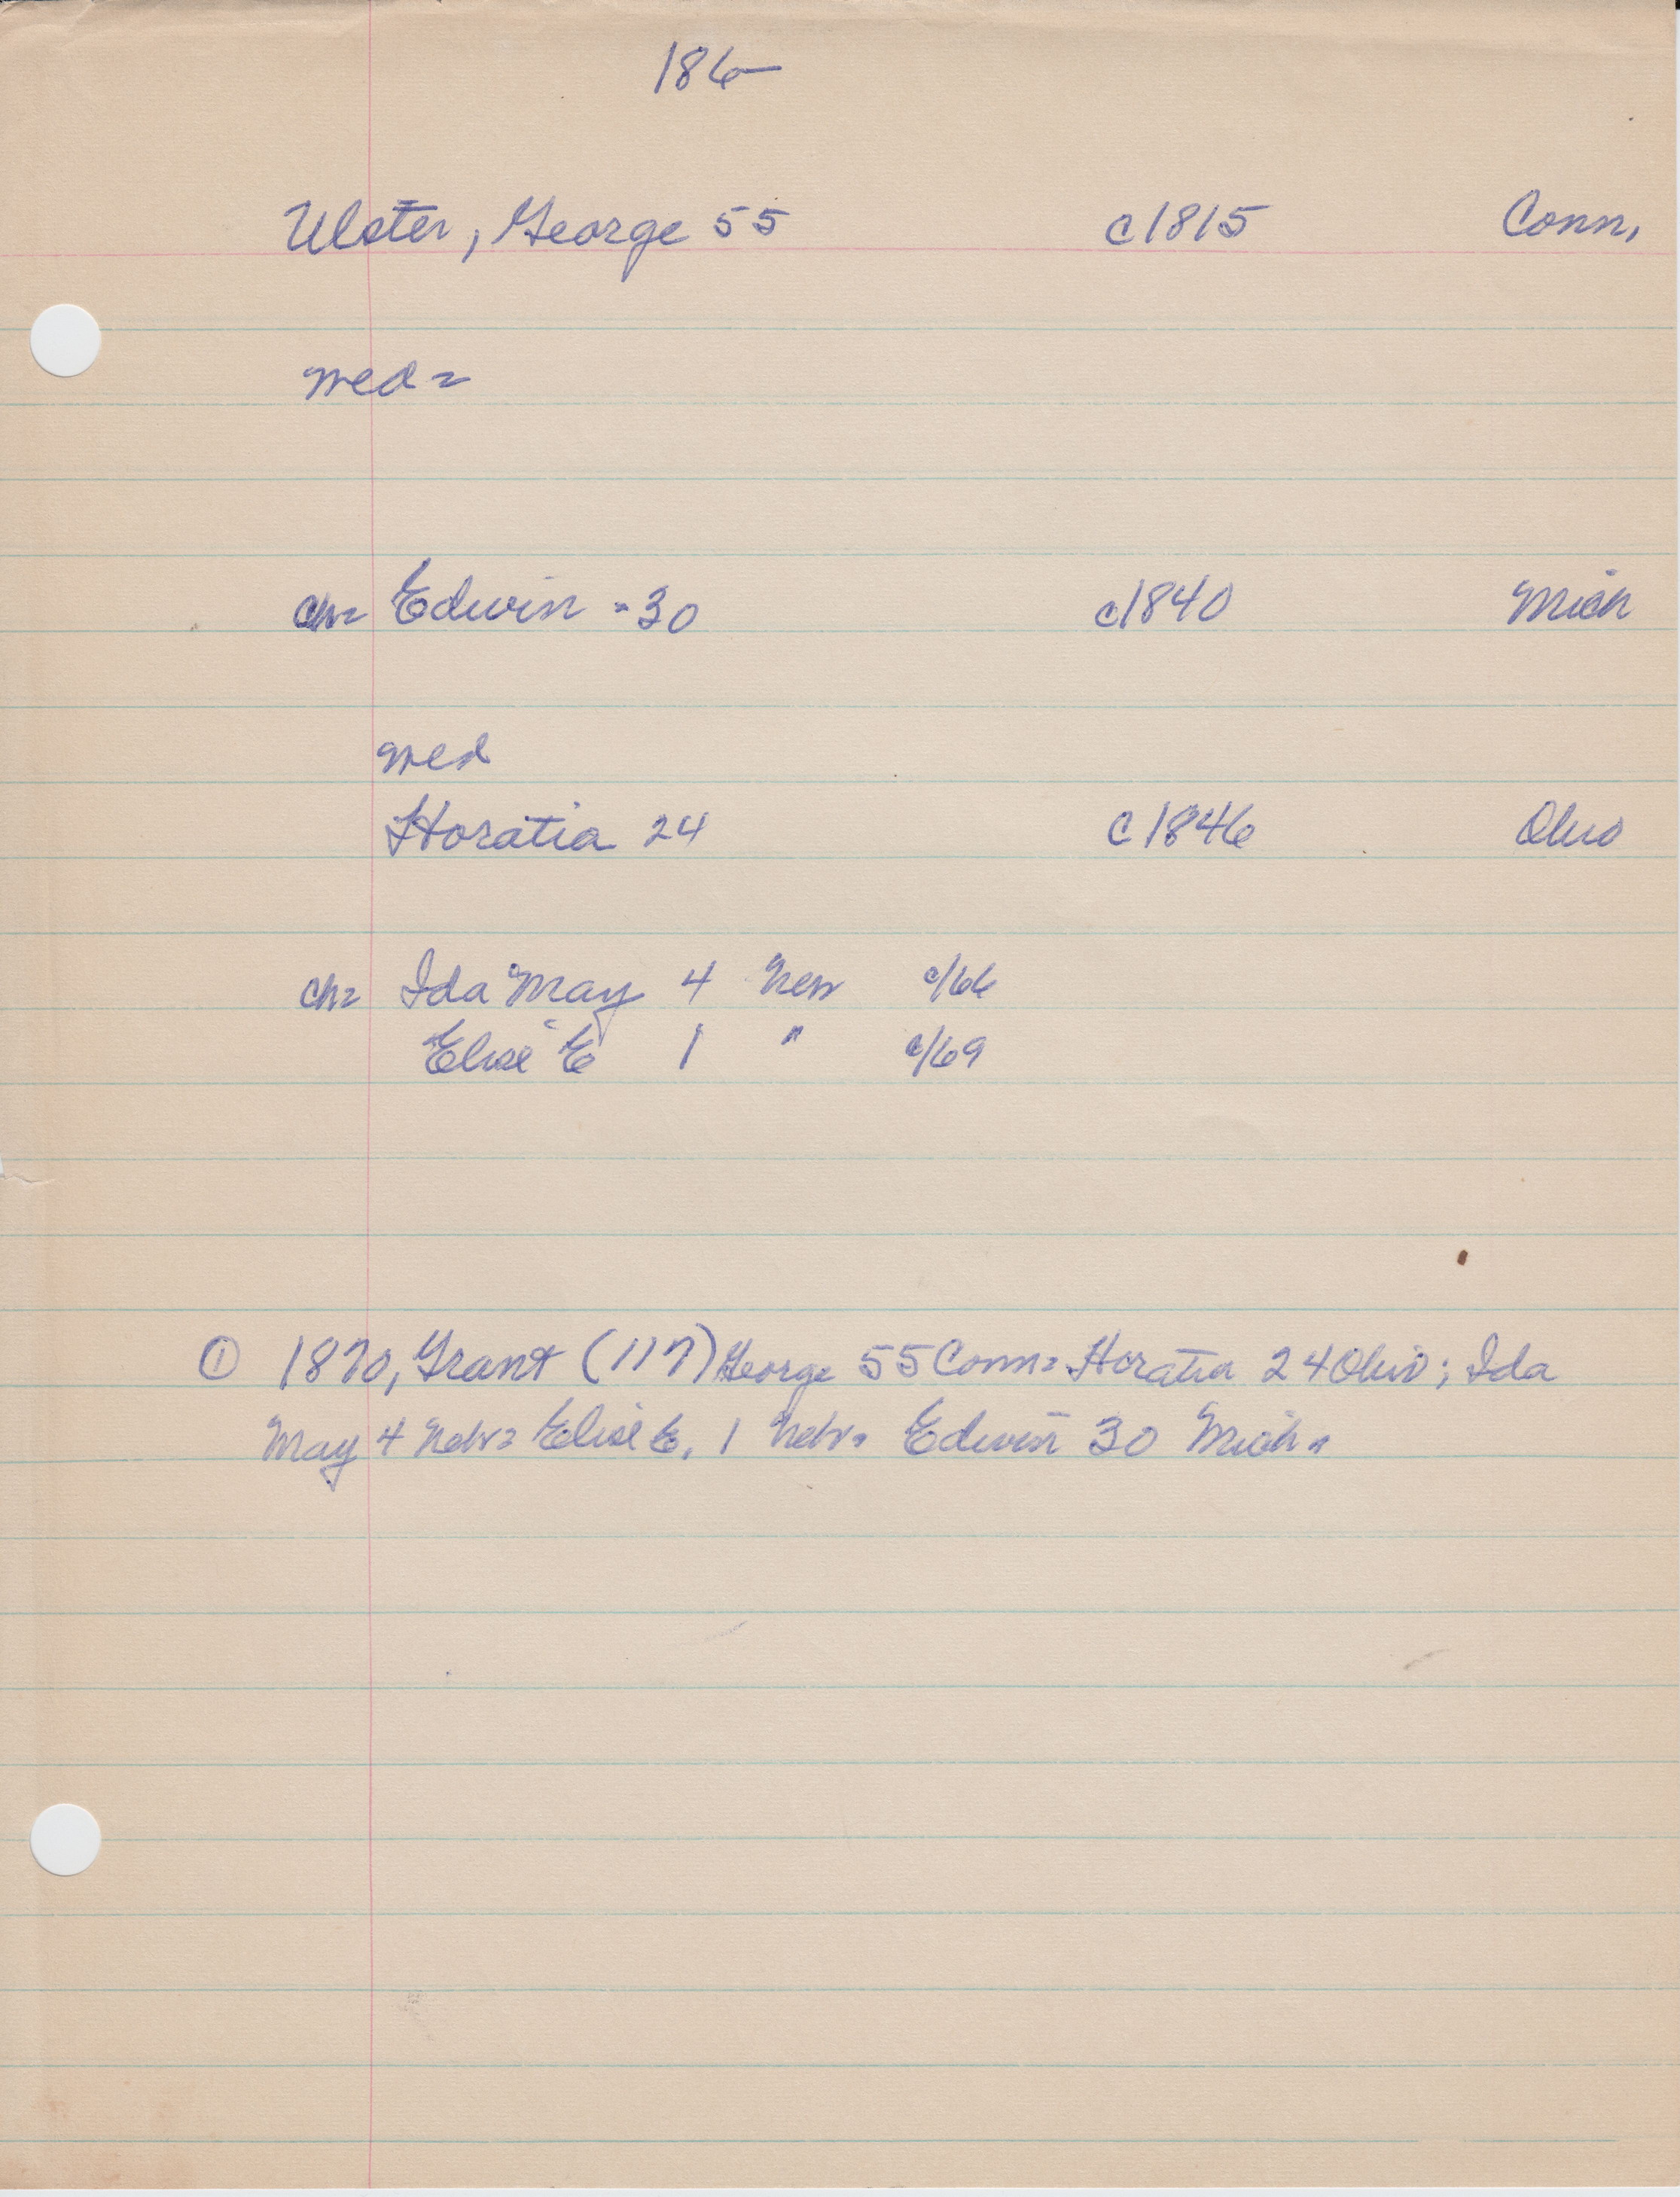 186-
Ulster, George 55 c1815 Conn.
med =
ch= Edwin - 30 c1840 Mich
med
Horatia 24 c1846 Ohio
ch= Ida May 4 c/66
Elise E 1 " c/69
① 1870, Grant (117) George 55 Conn= Horatia 24 Ohio; Ida
May 4 Nebr= Elise E. 1 Nebr. Edwin 30 Mich.